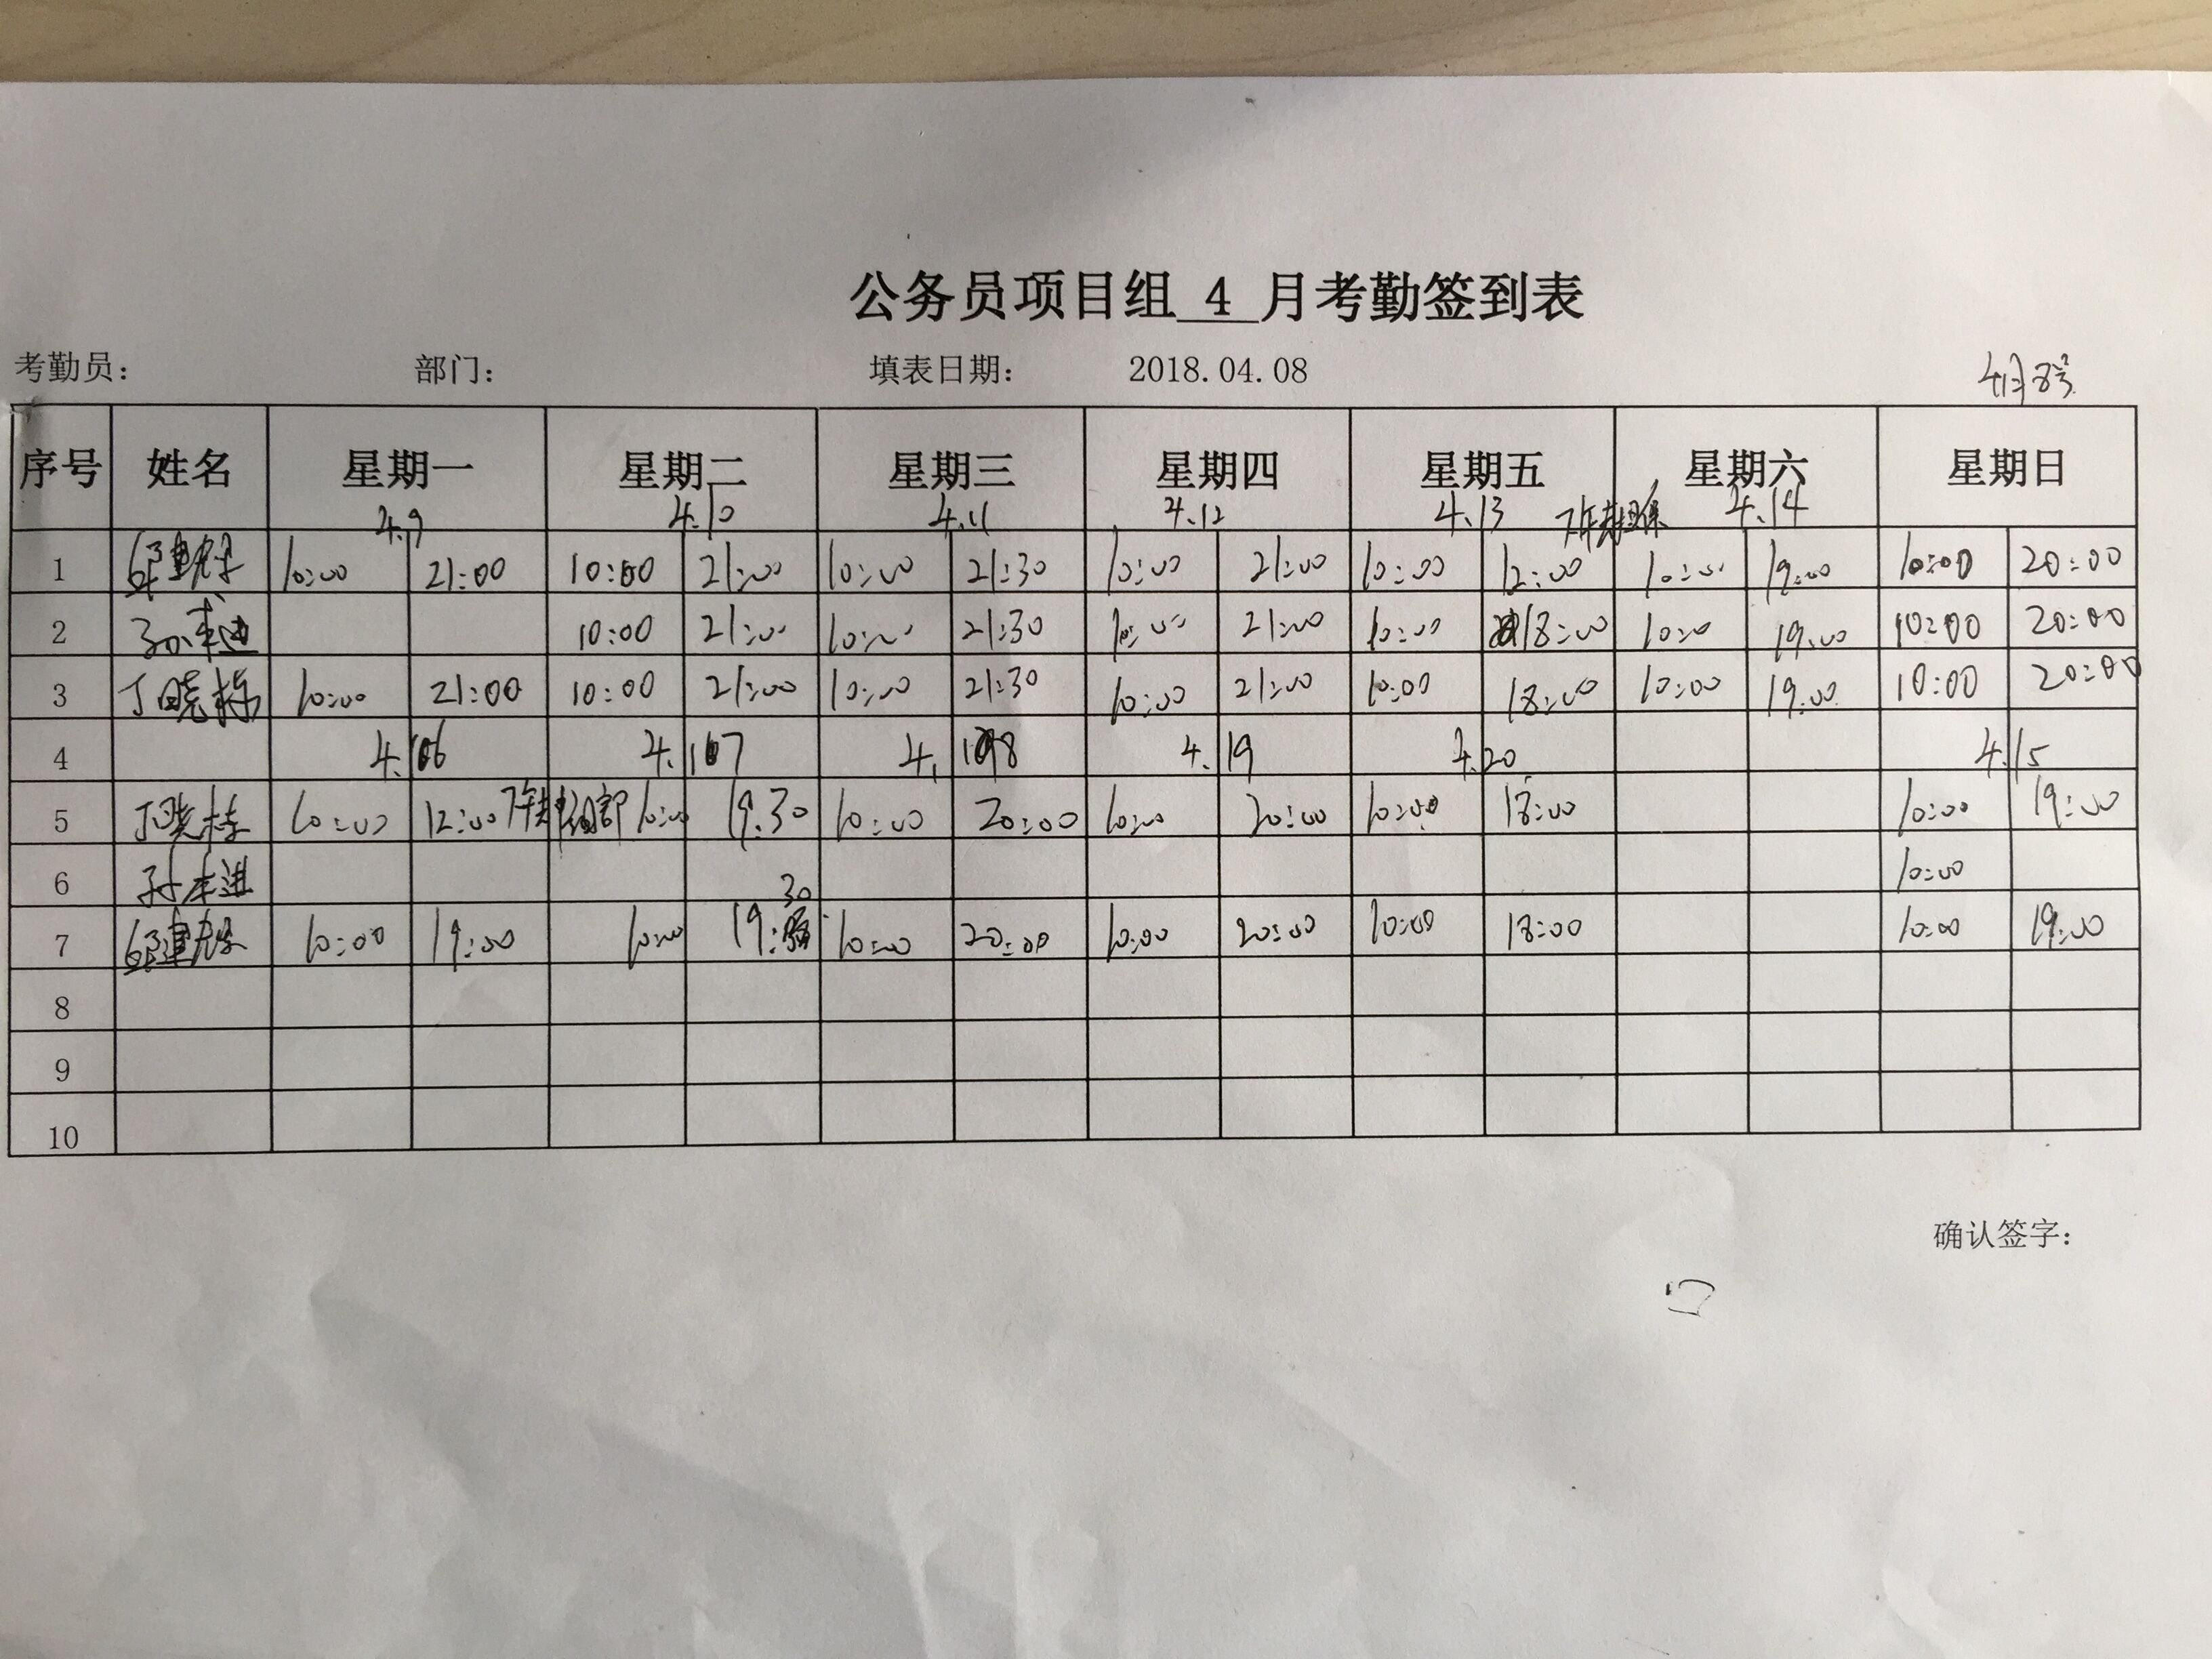 公务员项目组 4 月考勤签到表
考勤员： 部门： 填表日期： 2018.04.08 4月8号
序号 姓名 星期一 星期二 星期三 星期四 星期五 星期六 星期日
4.9 4.10 4.11 4.12 4.13 4.14
1 10:00 21:00 10:00 21:00 10:00 21:30 10:00 21:00 10:00 12:00 10:00 19:00 10:00 20:00
2 10:00 21:00 10:00 21:30 10:00 21:00 10:00 18:00 10:00 19:00 10:00 20:00
3 丁晓栋 10:00 21:00 10:00 21:00 10:00 21:30 10:00 21:00 10:00 18:00 10:00 19:00 10:00 20:00
4 4.16 4.17 4.18 4.19 4.20 4.15
5 丁晓栋 10:00 12:00 10:00 19:30 10:00 20:00 10:00 20:00 10:00 18:00 10:00 19:00
6 10:00
7 10:00 19:00 10:00 19:30 10:00 20:00 10:00 20:00 10:00 18:00 10:00 19:00
8
9
10
确认签字：